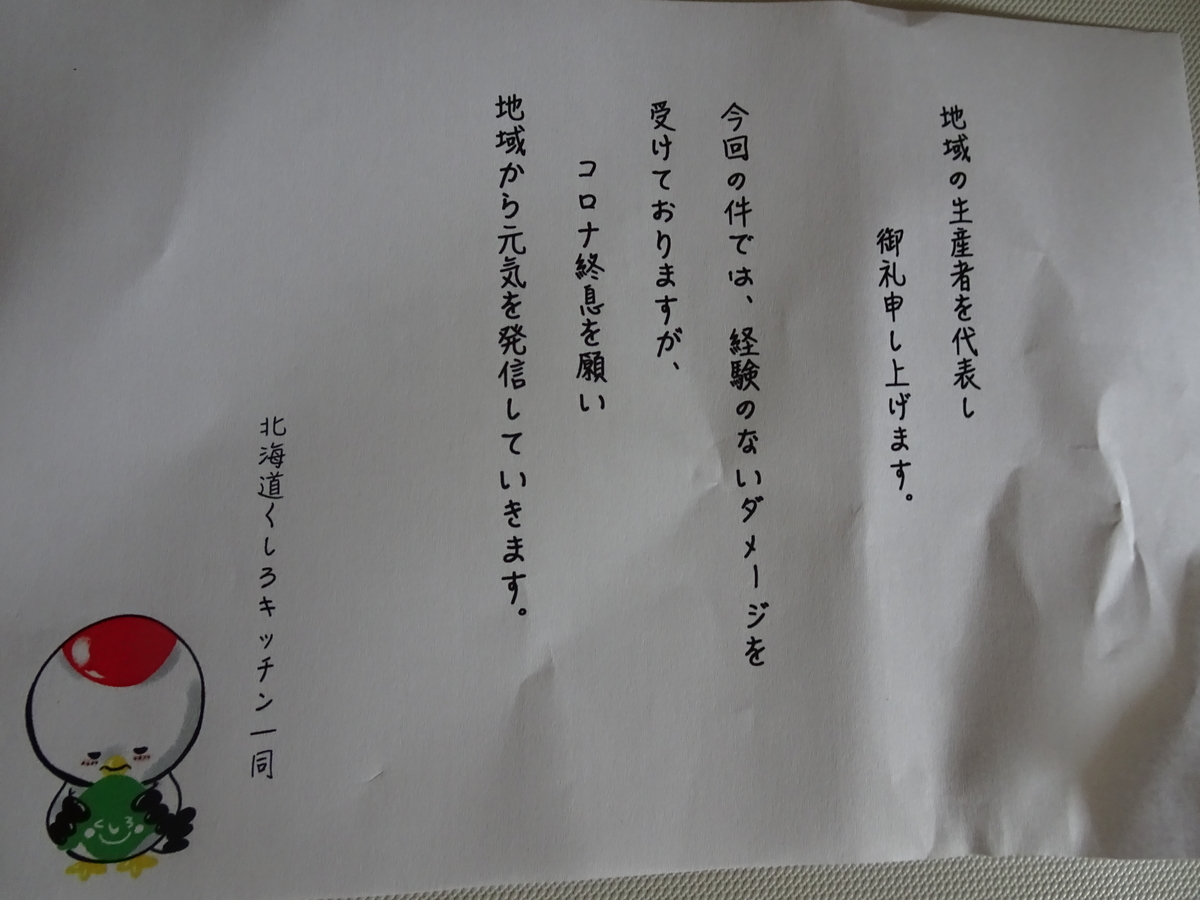 地域の生産者を代表し
御礼申し上げます。
今回の件では、経験のないダメージを
受けておりますが、
コロナ終息を願い
地域から元気を発信していきます。
北海道くしろキッチン一同